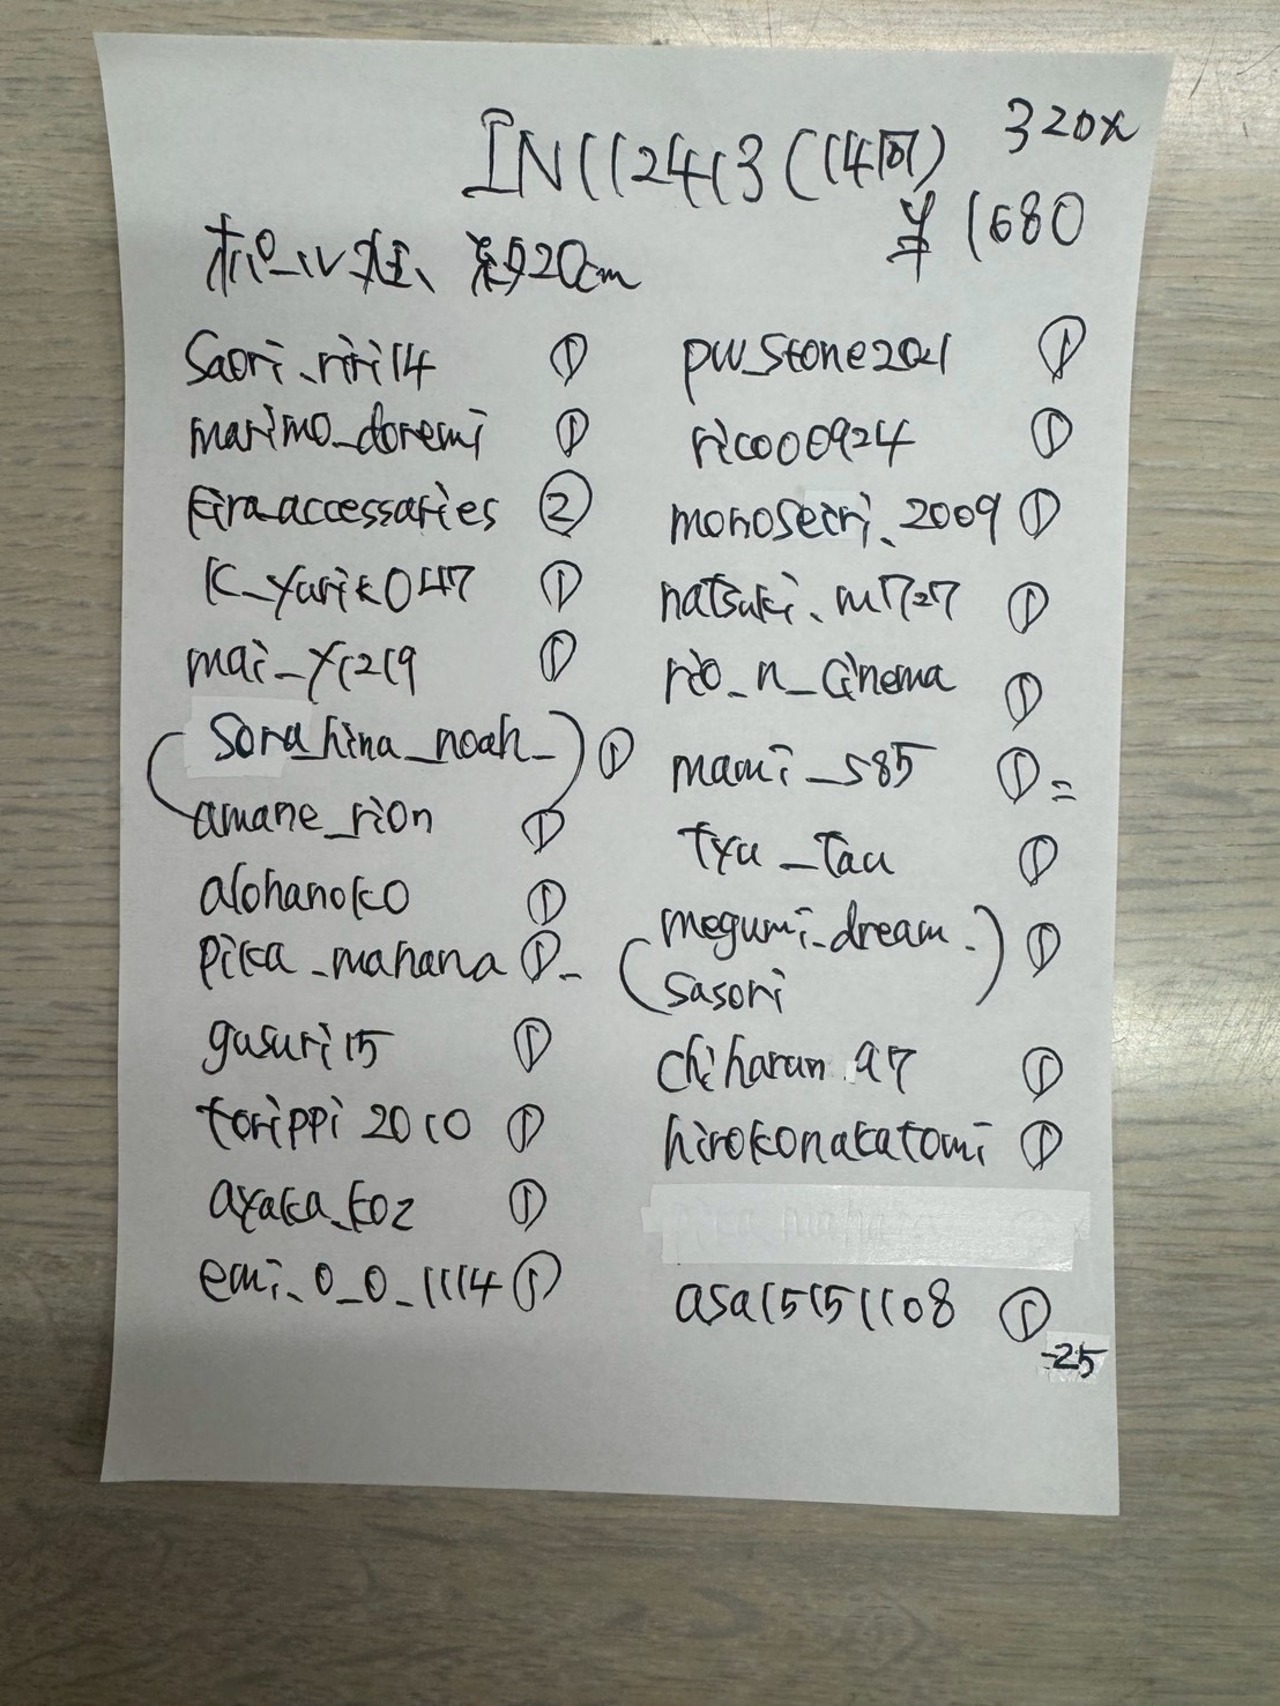 IN112413 (114回) 320x
¥1680
ポール径、約920cm
saori.riri14 ①
marimo_doremi ①
kira_accessaries ②
k_yuriko47 ①
mai_y1219 ①
(sora_hina_noah_) ①
amane_rion ①
alohanoko ①
pika_mahana ①-
gusuri15 ①
torippi2010 ①
ayaka_koz ①
emi_0_0_1114 ①
pw_stone2021 ①
rico00924 ①
monoseiri_2009 ①
natsuki.m727 ①
rio_n_cinema ①
mami_s85 ①=
tyu_tau ①
(megumi_dream.) ①
sasori
chiharun.97 ①
hirokonakatomi ①
asa15151108 ①
-25